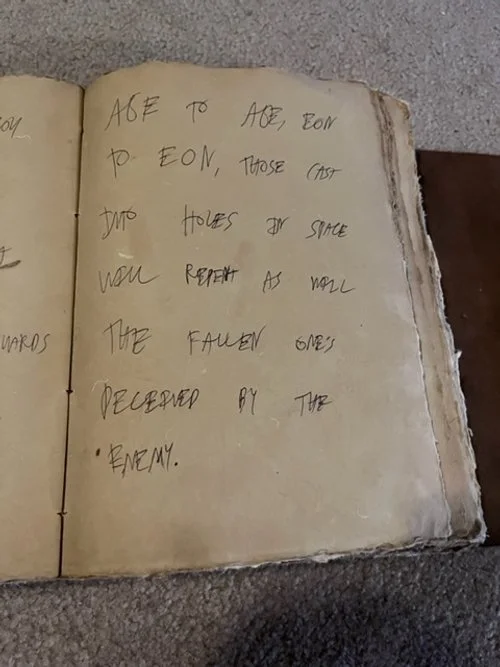 AGE TO AGE, EON
TO EON, THOSE CAST
INTO HOLES IN SPACE
WILL REPENT AS WILL
THE FALLEN ONE'S
DECEIVED BY THE
ENEMY.
WARDS